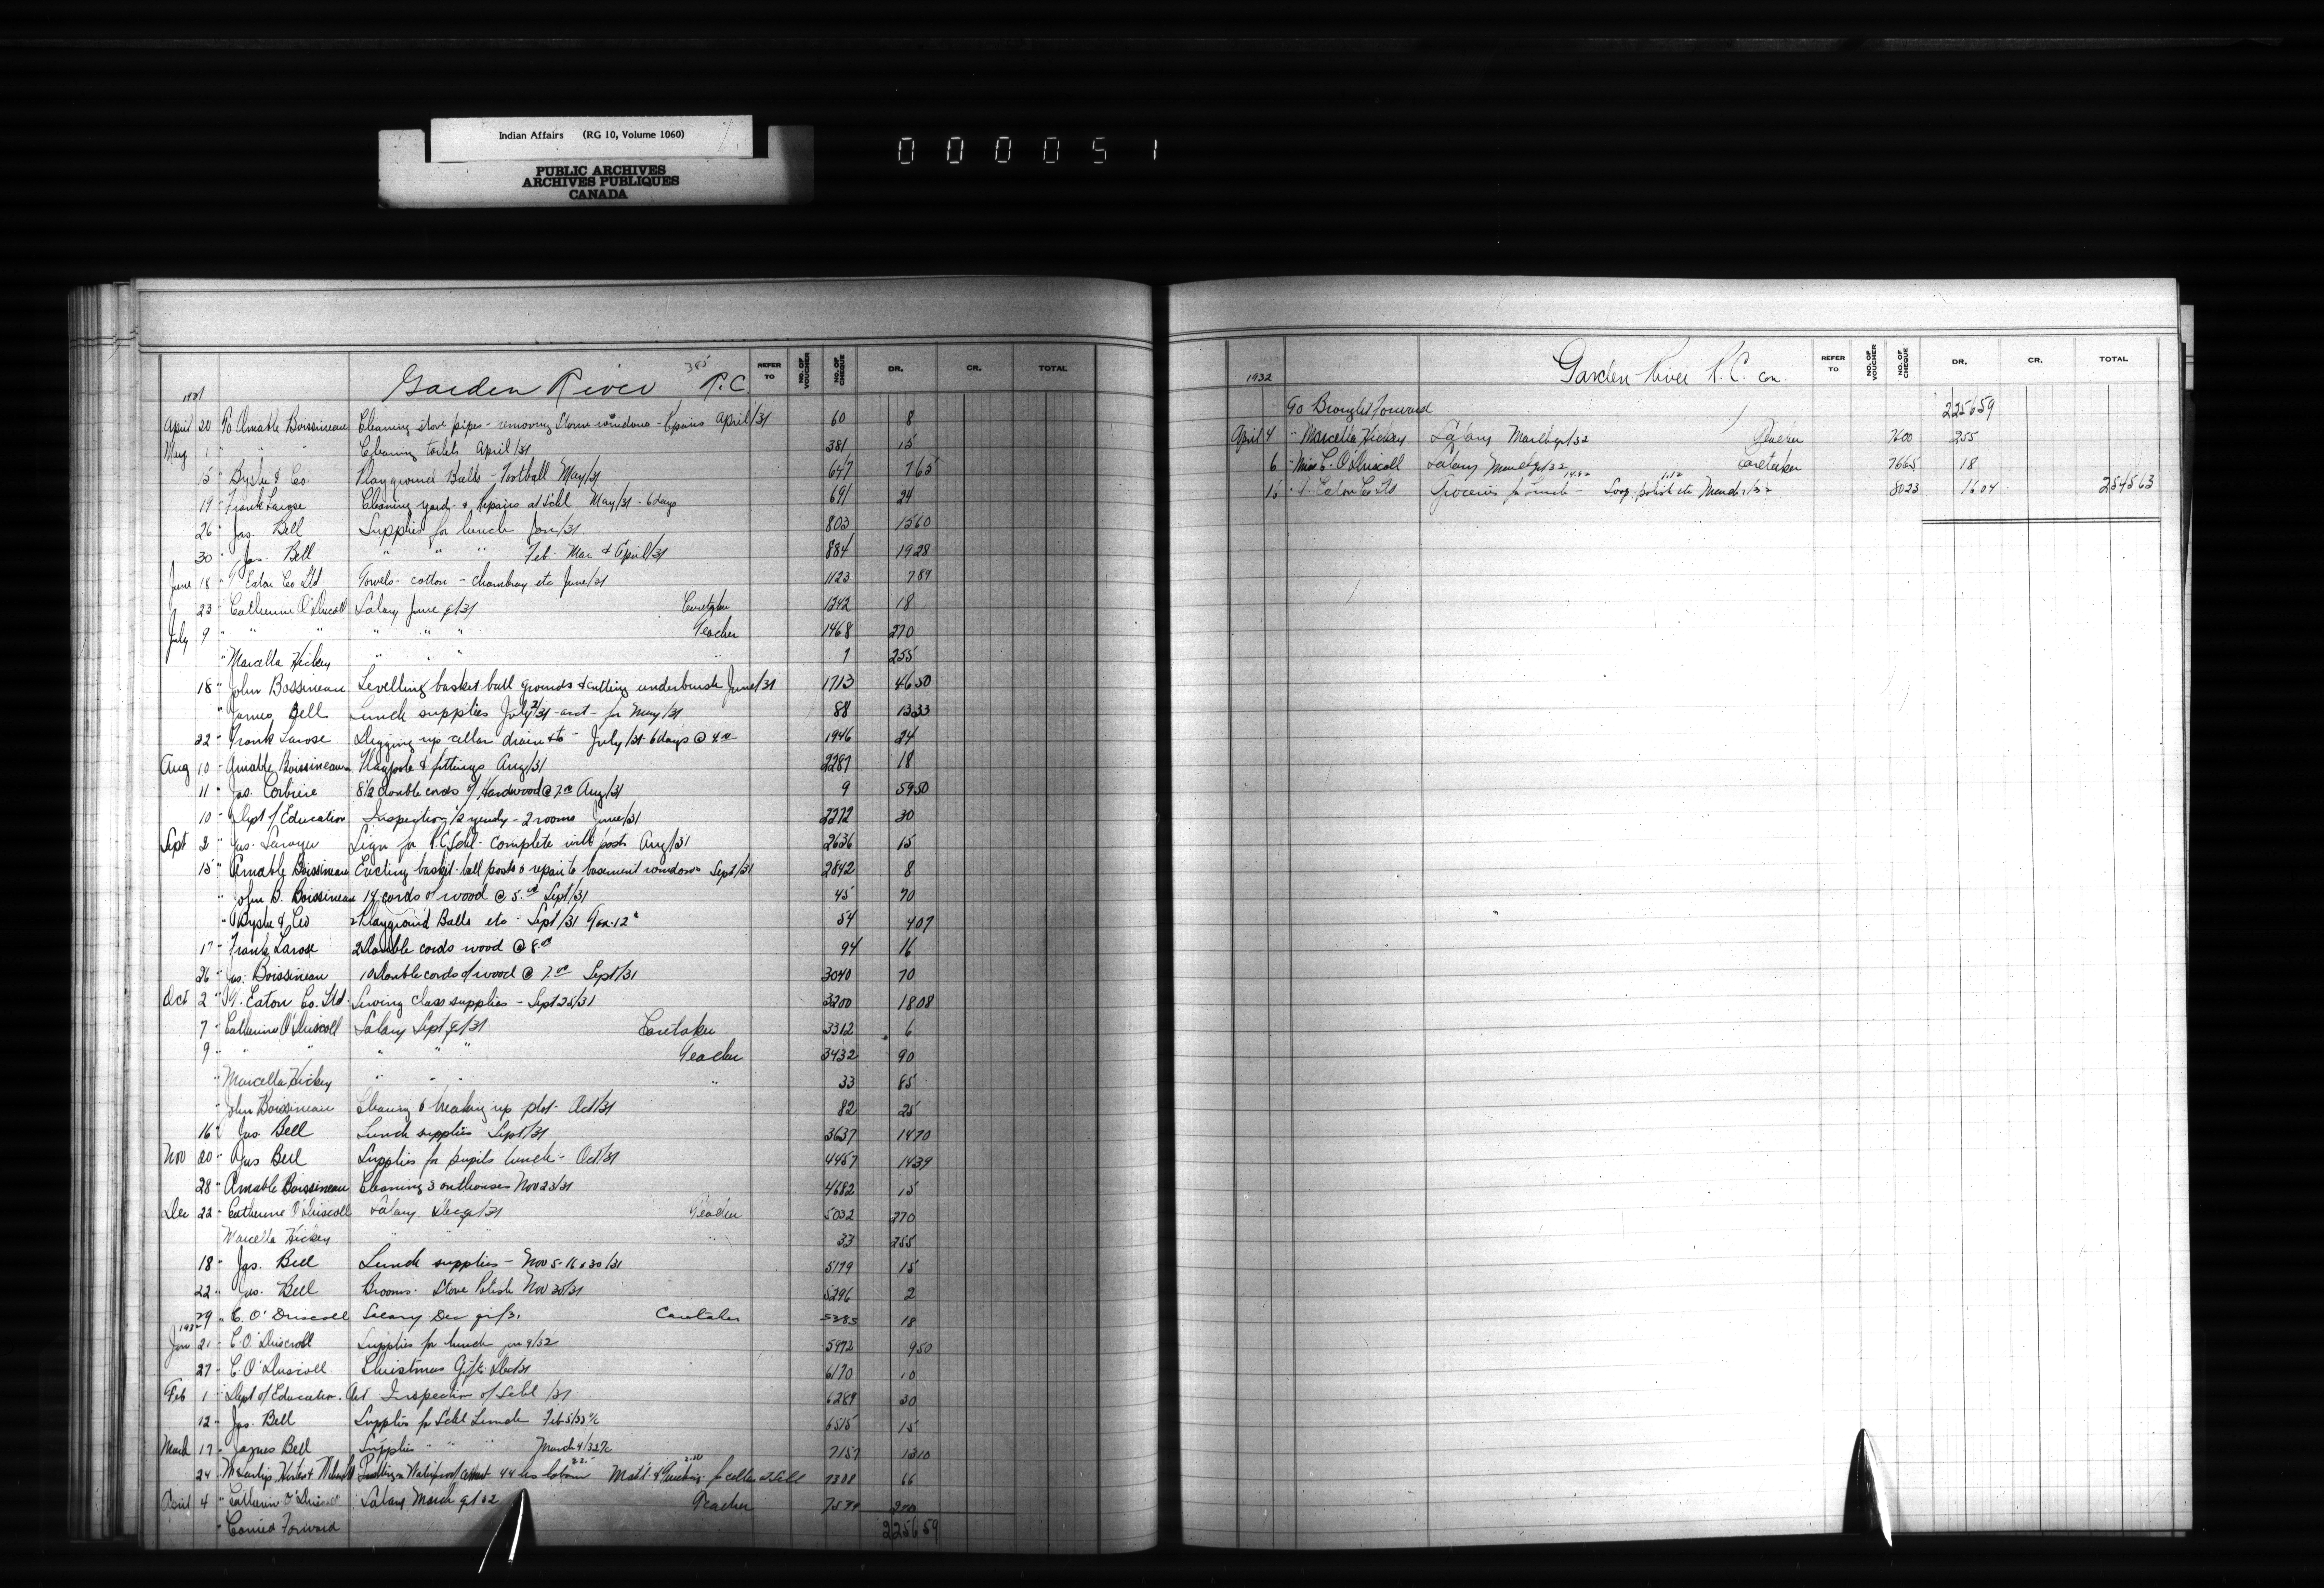 Indian Affairs (RG 10, Volume 1060)
PUBLIC ARCHIVES
ARCHIVES PUBLIQUES
CANADA
000051
385
Garden River R.C.
REFER TO NO. OF VOUCHER NO. OF CHEQUE DR. CR. TOTAL
1931
April 20 To Amable Boissineau Cleaning stove pipes - removing Storm windows - Repairs April/31 60 8
May 1 " " " Cleaning toilets April/31 381 15
15 " & Co. Playground Balls - Football May/31 647 7 65
19 " Frank Larose Cleaning yard - & Repairs at Schl May/31 - 6 days 691 24
26 " Jas. Bell Supplies for lunch Jan/31 803 15 60
30 " Jas. Bell " " " Feb Mar & April/31 884 19 28
June 18 " T. Eaton Co Ltd. Towels - cotton - chambray etc June/31 1123 7 89
23 " Catherine O'Driscoll Salary June q/31 Caretaker 1242 18
July 9 " " " " " " Teacher 1468 270
" Marcella Hickey " " " " 9 255
18 " John Boissineau Levelling basket ball grounds & cutting underbrush June/31 1713 46 50
" James Bell Lunch supplies July 3/31 - acct - for May/31 88 13 33
22 " Frank Larose Digging up cellar drain etc - July/31 - 6 days @ 4.00 1946 24
Aug 10 " Amable Boissineau Flagpole & fittings Aug/31 2287 18
11 " Jas. Corbiere 8 1/2 double cords of Hardwood @ 7.00 Aug/31 9 59 50
10 " Dept of Education Inspection 1/2 yearly - 2 rooms June/31 2272 30
Sept 2 " Jas. Sign for R.C. Schl - complete with posts Aug/31 2636 15
15 " Amable Boissineau Erecting basket-ball posts & repair to basement windows Sept/31 2842 8
" John B. Boissineau 14 cords of wood @ 5.00 Sept/31 45 70
" & Co Playground Balls etc - Sept/31 54 4 07
17 " Frank Larose 2 double cords wood @ 8.00 94 16
26 " Jas. Boissineau 10 double cords of wood @ 7.00 Sept/31 3040 70
Oct 2 " T. Eaton Co. Ltd. Sewing class supplies - Sept 25/31 3200 18 08
7 " Catherine O'Driscoll Salary Sept q/31 Caretaker 3312 6
9 " " " " " " Teacher 3432 90
" Marcella Hickey " " " " 33 85
" John Boissineau Clearing & breaking up plot - Oct/31 82 25
16 " Jas. Bell Lunch supplies Sept/31 3637 14 70
Nov 20 " Jas Bell Supplies for pupils lunch - Oct/31 4457 14 39
28 " Amable Boissineau Cleaning 3 outhouses Nov 23/31 4682 15
Dec 22 " Catherine O'Driscoll Salary Dec q/31 Teacher 5032 270
Marcella Hickey " " " " 33 255
18 " Jas. Bell Lunch supplies - Nov 5-16 & 30/31 5179 15
22 " Jas. Bell Brooms - Stove Polish Nov 30/31 5296 2
29 " C. O'Driscoll Salary Dec qr/31 Caretaker 5385 18
1932
Jan 21 " C. O'Driscoll Supplies for lunch Jan 9/32 5972 9 50
27 " C O'Driscoll Christmas Gifts Dec/31 6170 10
Feb 1 " Dept of Education. Ont Inspection of Schl /31 6289 30
12 " Jas. Bell Supplies for Schl Lunch 6515 15
March 17 " James Bell Supplies " " " 7157 13 10
24 44 hrs labour for cellar at Schl 7388 66
April 4 " Catherine O'Driscoll Salary March q/32 Teacher
" Carried Forward 2256 59
1932
Garden River R.C. con.
REFER TO NO. OF VOUCHER NO. OF CHEQUE DR. CR. TOTAL
To Brought Forward 2256 59
April 4 " Marcella Hickey Salary March qr/32 Teacher 7600 255
6 " Miss C. O'Driscoll Salary March qr/32 Caretaker 7665 18
15 " T. Eaton Co Ltd Groceries for Lunch - Soap, polish etc March 2/32 8023 16 04 2545 63